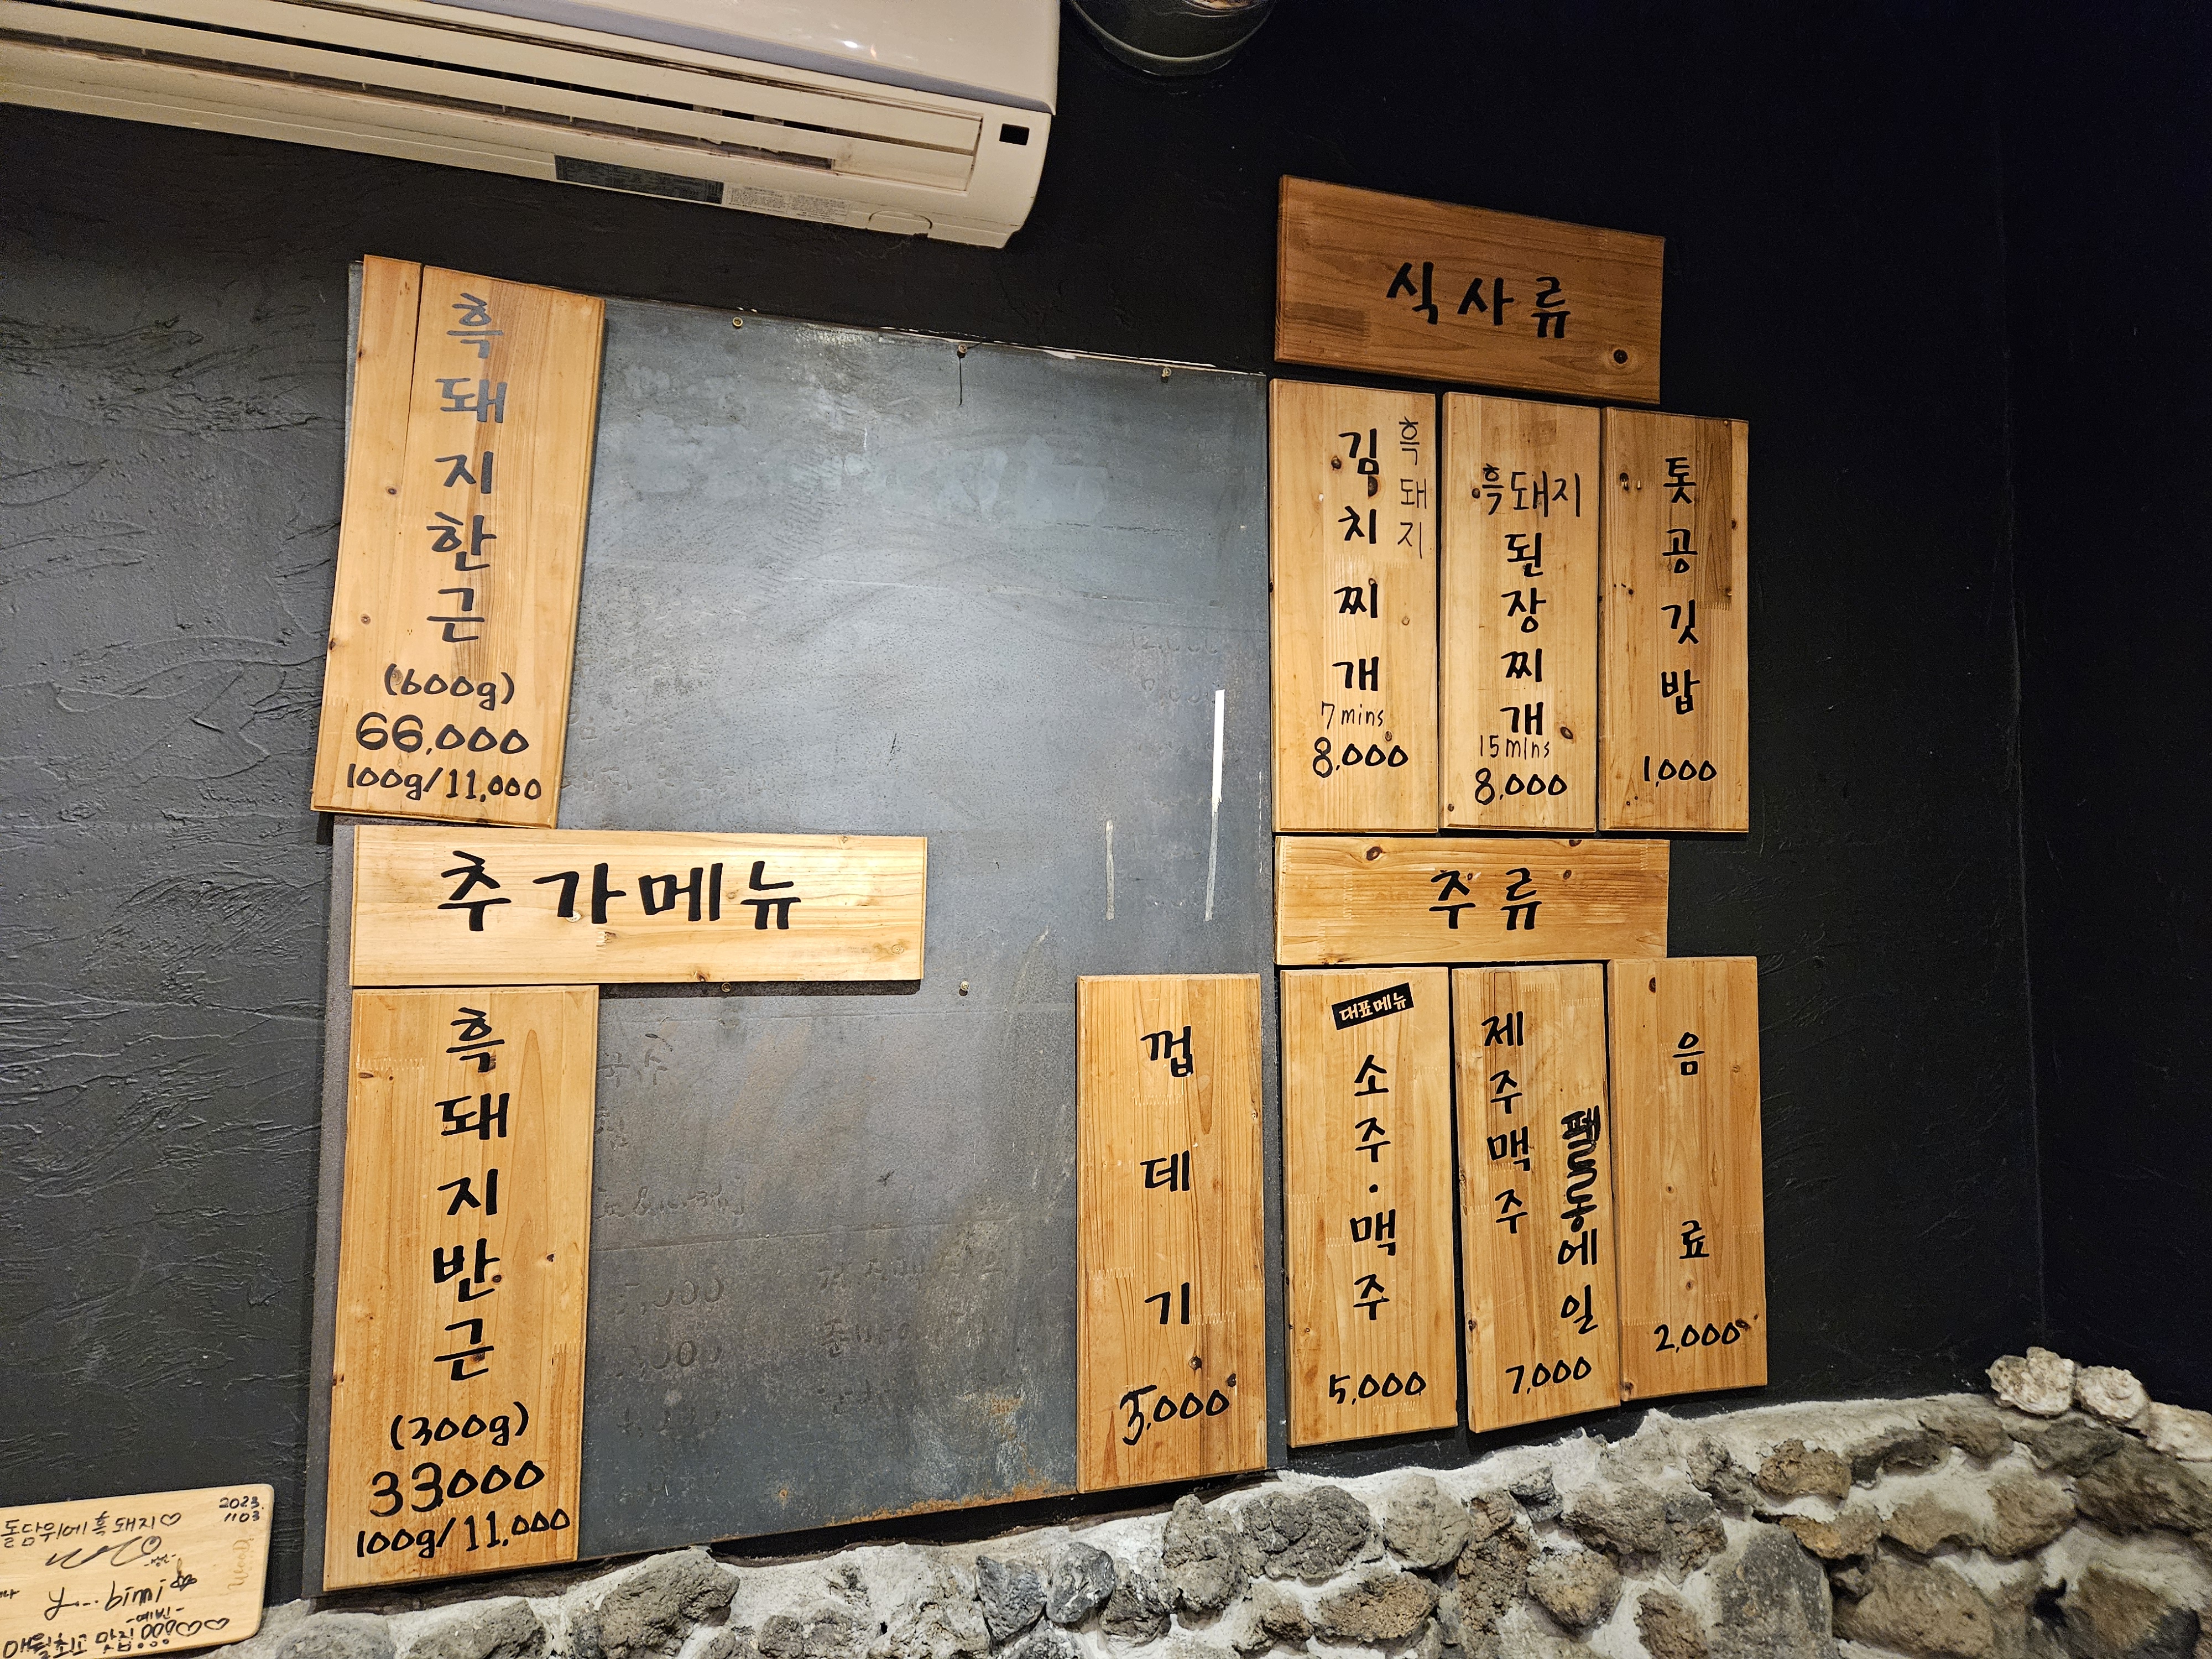 흑돼지한근
(600g)
66,000
100g/11,000
추가메뉴
흑돼지반근
(300g)
33000
100g/11,000
껍데기
5,000
식사류
흑돼지
김치찌개
7mins
8,000
흑돼지
된장찌개
15mins
8,000
톳공깃밥
1,000
주류
대표메뉴
소주·맥주
5,000
제주맥주
에일
7,000
음료
2,000
2023.
1103
돌담위에흑돼지♡
-예빈-
매월최고 맛집